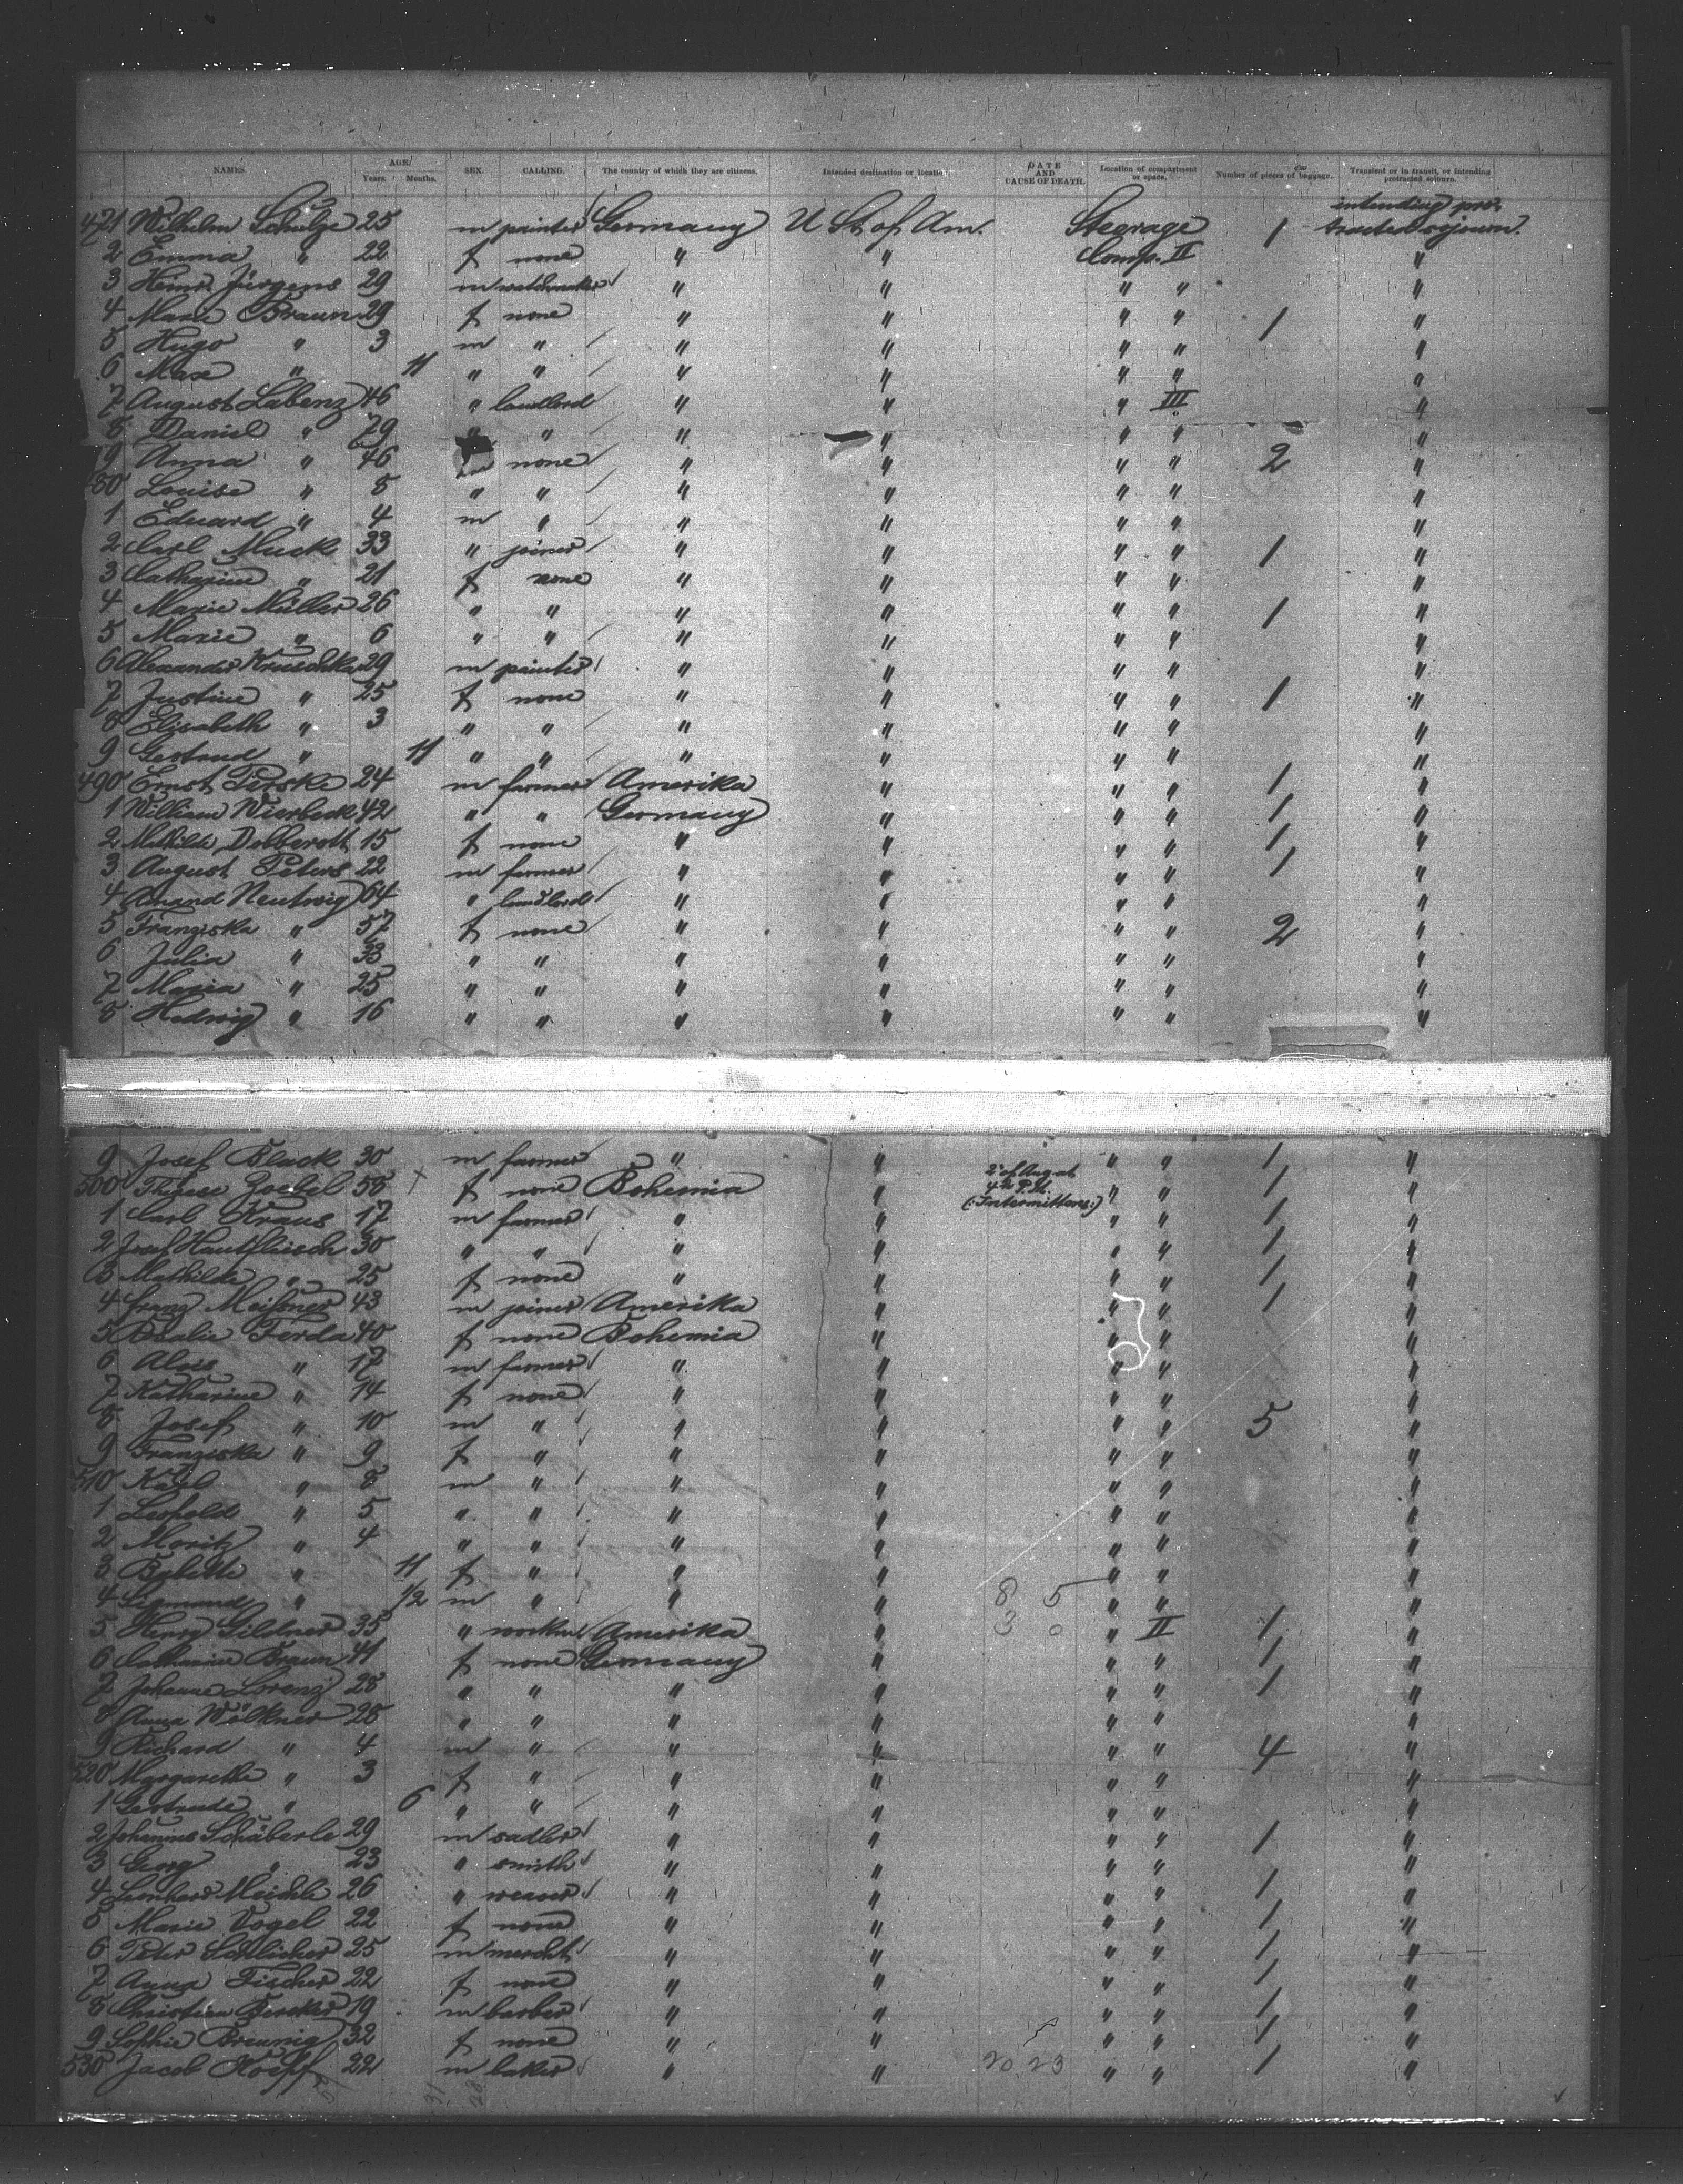 NAMES. AGE. Years. Months. SEX. CALLING. The country of which they are citizens. Intended destination or location. DATE AND CAUSE OF DEATH. Location of compartment or space. Number of pieces of baggage. Transient or in transit, or intending protracted sojourn.
471 Wilhelm Schulze 25 m painter Germany U St of Am. Steerage 1 intending protracted sojourn.
2 Emma " 22 f none " " Comp. II "
3 Heinr. Jürgens 29 m watchmaker " " " " "
4 Marie Braun 29 f none " " " " 1 "
5 Hugo " 3 m " " " " " "
6 Max " 11 " " " " " " "
7 August Labenz 46 " landlord " " " III "
8 Daniel " 79 " " " " " " "
9 Anna " 46 none " " " " 2 "
80 Louise " 8 " " " " " " "
1 Eduard " 4 m " " " " " "
2 Carl Muck 33 " joiner " " " " 1 "
3 Catharine " 21 f none " " " " "
4 Marie Müller 26 " " " " " " 1 "
5 Marie " 6 " " " " " " "
6 Alexander Kruschka 29 m painter " " " " "
7 Justine " 25 f none " " " " 1 "
8 Elisabeth " 3 " " " " " " "
9 Gertrud " 11 " " " " " " "
490 Ernst Perske 24 m farmer Amerika " " " 1 "
1 William Wierbeck 42 " " Germany " " " 1 "
2 Mathilde Dobberott 15 f none " " " " 1 "
3 August Peters 22 m farmer " " " " 1 "
4 Amand Neutwig 64 " landlord " " " " "
5 Franziska " 57 f none " " " " 2 "
6 Julia " 33 " " " " " " "
7 Maria " 25 " " " " " " "
8 Hedwig " 16 " " " " " " "
9 Josef Black 30 m farmer " " " " 1 "
500 Therese Zoebel 58 x f none Bohemia " 2 of Aug at 4 h P.M. (:Intermittens:) " " 1 "
1 Carl Kraus 17 m farmer " " " " 1 "
2 Josef Hautfleisch 30 " " " " " " 1 "
3 Mathilde " 25 f none " " " " 1 "
4 Franz Meißner 43 m joiner Amerika " " " 1 "
5 Rosalie Ferda 40 f none Bohemia " " " "
6 Alois " 17 m farmer " " " " "
7 Katharine " 14 f none " " " " "
8 Josef " 10 m " " " " " 5 "
9 Franziska " 9 f " " " " " "
510 Karl " 8 m " " " " " "
1 Leopold " 5 " " " " " " "
2 Moritz " 4 " " " " " " "
3 Babette " 11 f " " " " " "
4 Sigmund " 1/2 m " " " 8 5 " " "
5 Henry Gildner 35 " workm Amerika " 3 0 " II 1 "
6 Catharine Braun 41 f none Germany " " " 1 "
7 Johanne Lorenz 28 " " " " " " 1 "
8 Anna Wölkner 28 " " " " " " "
9 Richard " 4 m " " " " " 4 "
520 Margarethe " 3 f " " " " " "
1 Gertrude " 6 " " " " " " "
2 Johannes Schäberle 29 m sadler " " " " 1 "
3 Georg " 23 " smith " " " " "
4 Leonhard Meichle 26 " weaver " " " " 1 "
5 Marie Vogel 22 f none " " " " 1 "
6 Peter Schlicher 25 m mercht " " " " 1 "
7 Anna Fischer 22 f none " " " " 1 "
8 Christian Fercker 19 m barber " " " " 1 "
9 Sophie Breunig 32 f none " " " " 1 "
530 Jacob Hoeff 22 m baker " " 20 23 " " 1 "
31 28